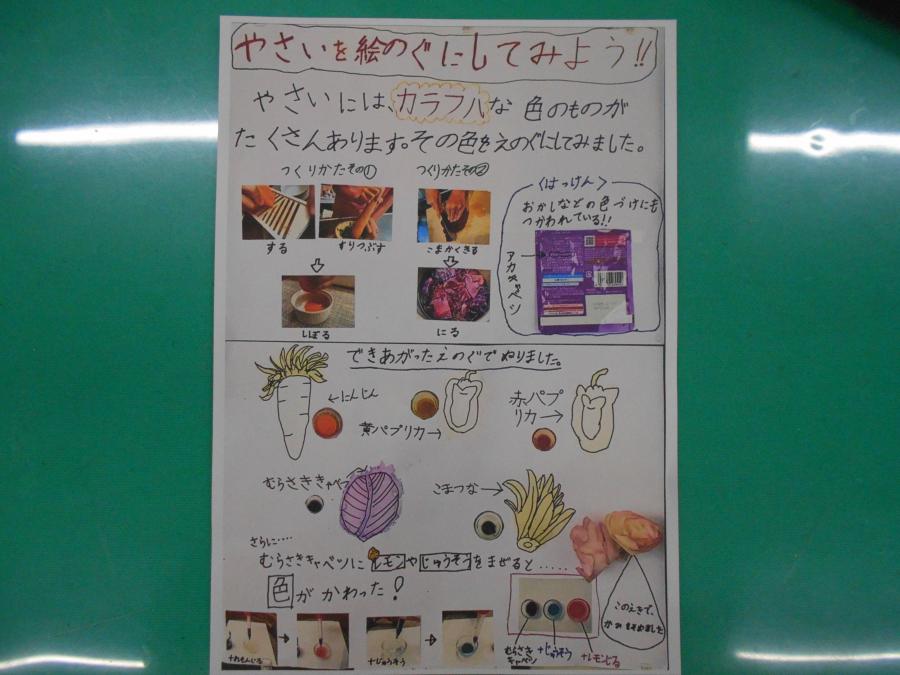 やさいを絵のぐにしてみよう!!
やさいには、カラフルな色のものが
たくさんあります。その色をえのぐにしてみました。
つくりかたその①
つくりかたその②
する
すりつぶす
しぼる
こまかくきる
にる
〈はっけん〉
おかしなどの色づけにも
つかわれている!!
アカキャベツ
できあがったえのぐでぬりました。
←にんじん
黄パプリカ→
赤パプ
リカ→
むらさききゃべつ
こまつな→
さらに····
むらさきキャベツにレモンやじゅうそうをまぜると.....
色がかわった!
このえきで、
かみをそめました
+れもんじる
+じゅうそう
むらさき
キャベツ
+じゅうそう
+レモンじる